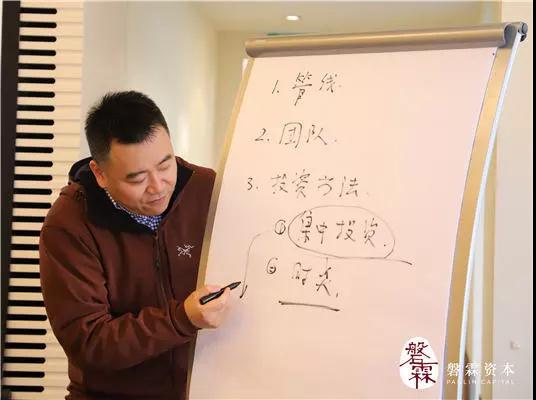 1. 管线.
2. 团队.
3. 投资方法.
① 集中投资.
② 时点.
磐霖
磐霖资本
PANLIN CAPITAL